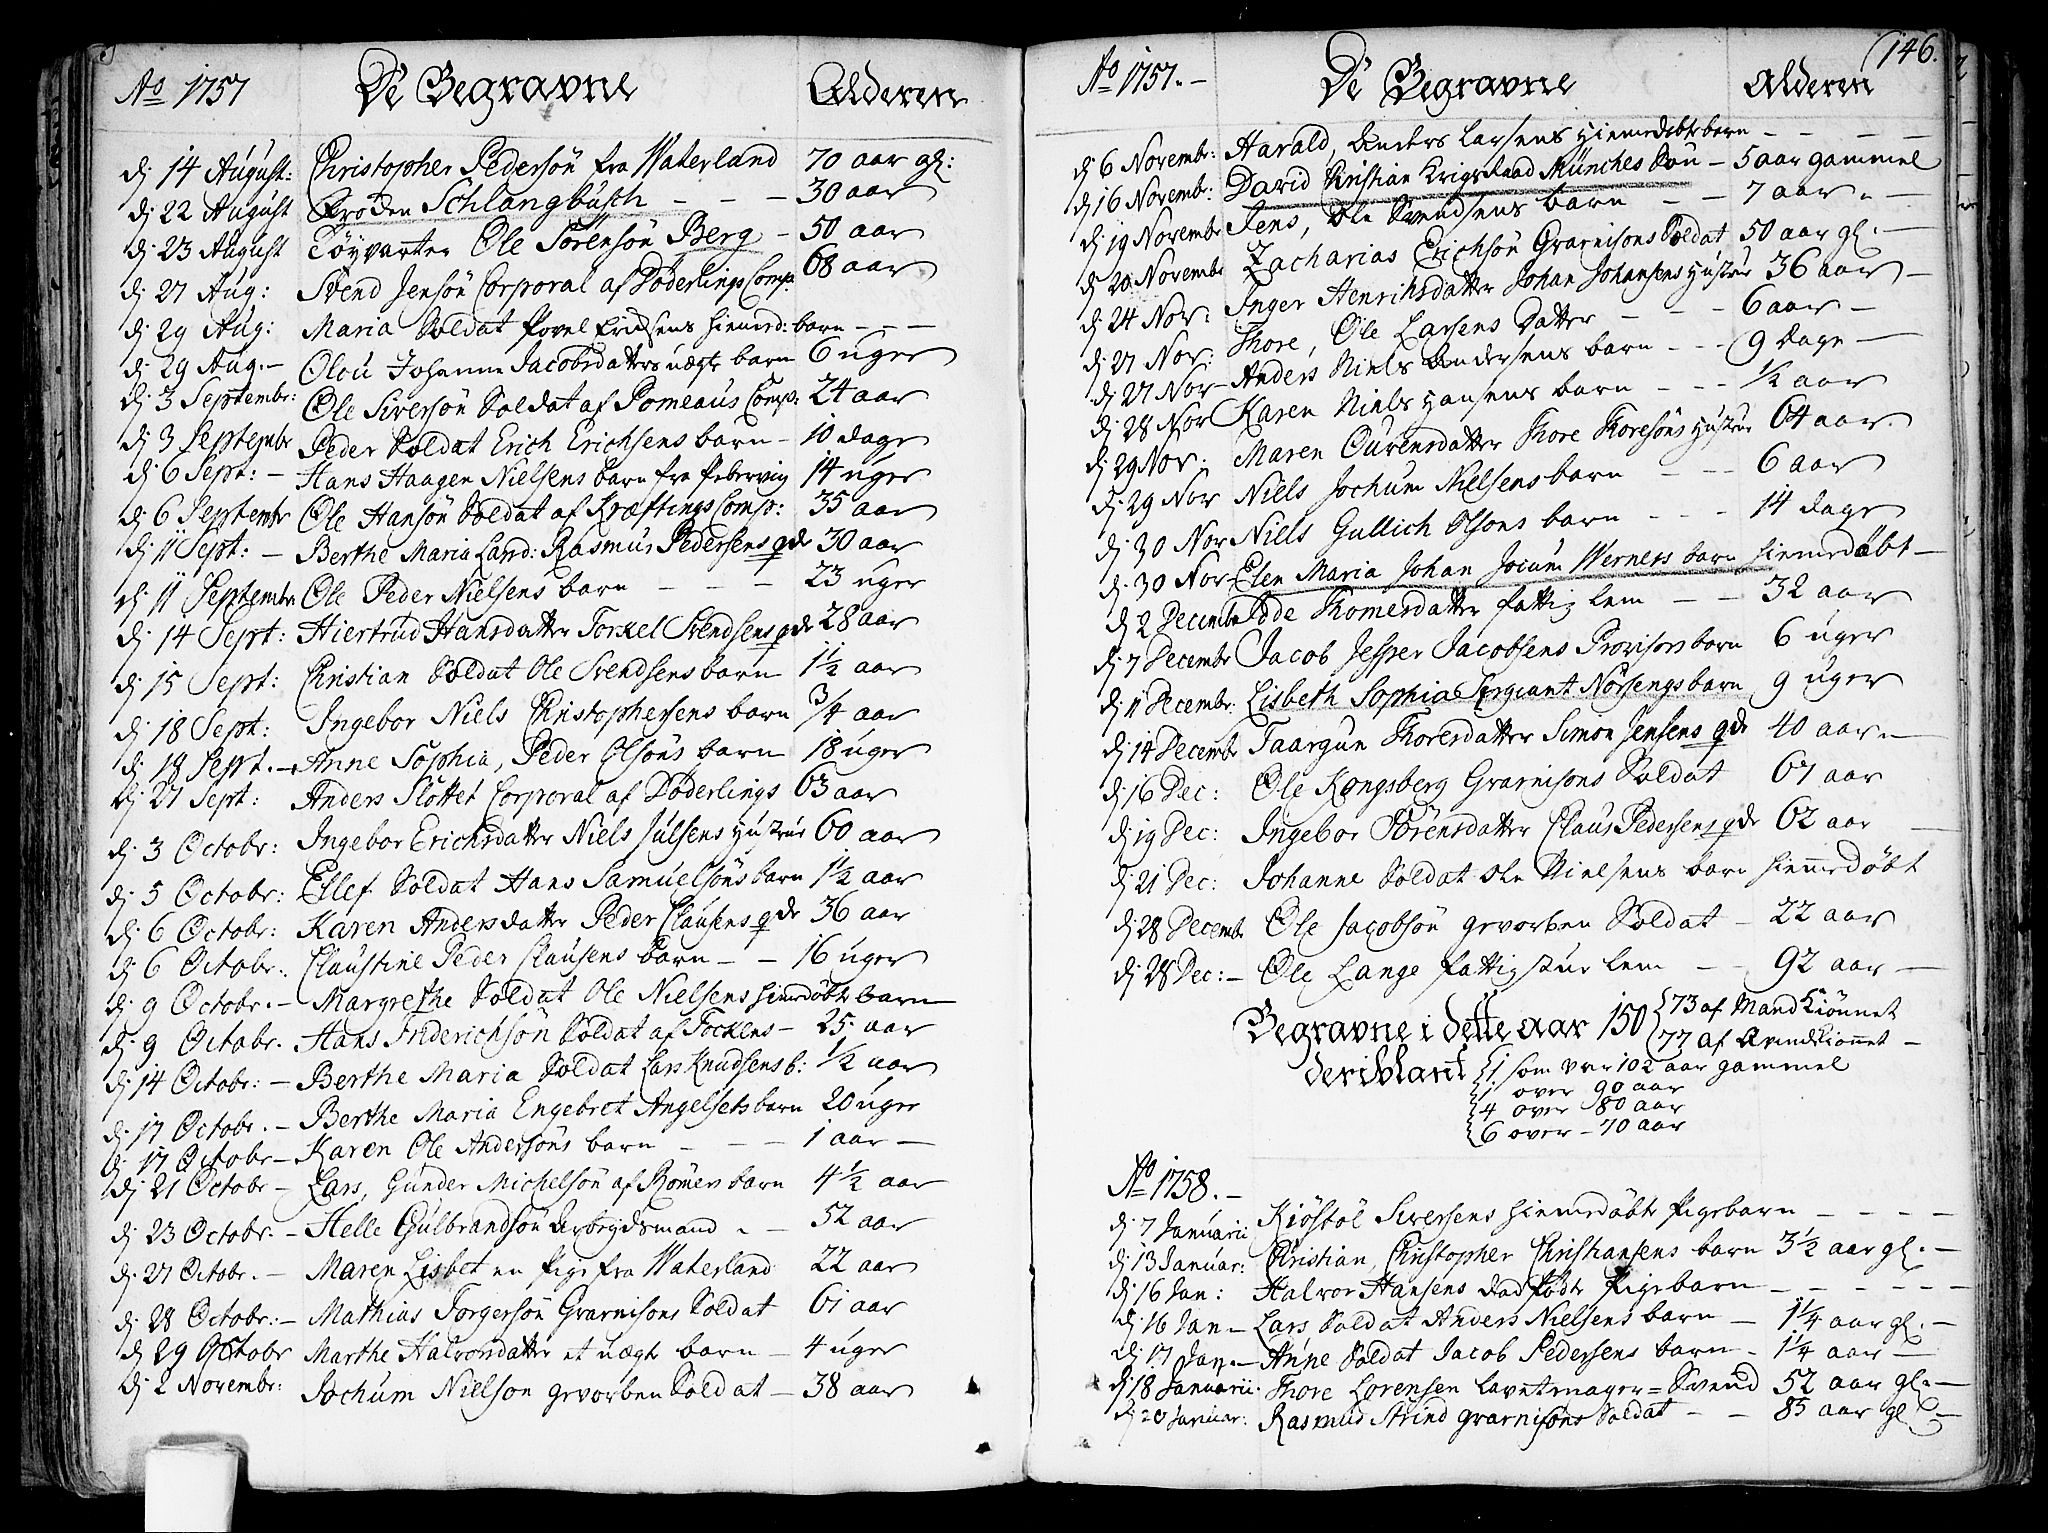 Ao 1757 De Begravne Alderen
dj 14 August: Christopher Pedersön fra Waterland 70 aar gl:
dj 22 August Schlangbusch - - - 30 aar
dj 23 August Töyvarter Ole Sörensön Berg - 50 aar
dj 27 Aug: Svend Jensön Corporal af Döderlings Comp: 68 aar
dj 29 Aug: Maria Soldat Povel Erichsens hiemed: barn - - -
dj 29 Aug. - Olou Johanne Jacobsdatters uægte barn 6 uger
dj 3 Septembr: Ole Siversön Soldat af Pomeaus Comp: 24 aar
dj 3 Septembr Peder Soldat Erich Erichsens barn - 10 dage
dj 6 Sept: - Hans Haagen Nielsens barn fra Pebervig 14 uger
dj 6 Septembr Ole Hansön Soldat af Kræftings Comp: 35 aar
dj 11 Sept: - Berthe Maria Land: Rasmus Pedersens qde 30 aar
dj 11 Septembr Ole Peder Nielsens barn - - - 23 uger
dj 14 Sept: Hiertrud Hansdatter Torkel Svendsens qde 28 aar
dj 15 Sept: Christian Soldat Ole Svendsens barn 1½ aar
dj 18 Sept: Ingebor Niels Christophersens barn ¾ aar
dj 18 Sept. - Anne Sophia, Peder Olsöns barn 18 uger
dj 27 Sept: Anders Slottet Corporal af Döderlings 63 aar
dj 3 Octobr: Ingebor Erichsdatter Niels Julsens Hustrue 60 aar
dj 5 Octobr: Ellef Soldat Hans Samuelsöns barn 1½ aar
dj 6 Octobr: Karen Andersdatter Peder Clausens qde 36 aar
dj 6 Octobr. Claustine Peder Clausens barn - - 16 uger
dj 9 Octobr. - Margrethe Soldat Ole Nielsens hiemdöbte barn
dj 9 Octobr. Hans Friderichsön Soldat af Fockens - 25 aar
dj 14 Octobr: - Berthe Maria Soldat Lars Knudsens b: ½ aar
dj 17 Octobr. - Berthe Maria Engebret Angelsets barn 20 uger
dj 17 Octobr - Karen Ole Andersöns barn - - - 1 aar -
dj 21 Octobr - Lars, Gunder Michelsön af Römers barn 4½ aar
dj 23 Octobr. - Helle Gulbrandsön Arbeydsmand - - 52 aar
dj 27 Octobr. - Maren Lisbet en Pige fra Waterland 22 aar
dj 28 Octobr. - Mathias Torgersön Grarnisons Soldat 61 aar
dj 29 Octobr Marthe Halvorsdatter et uægte barn - 4 uger
dj 2 Novembr: Jochum Nielson gevorben Soldat - 38 aar
(146.
Ao 1757. - De Begravne Alderen
dj 6 Novembr: Harald, Anders Larsens Hiemedöbte barn - - - -
dj 16 Novembr: David Christian Krigsraad Münches Sön - 5 aar gammel
dj 19 Novembr Jens, Ole Svendsens barn - - 7 aar -
dj 20 Novembr Zacharias Erichsön Grarnisons Soldat 50 aar gl. -
dj 24 Nov: Inger Henrichsdatter Johan Johansens Hustrue 36 aar -
dj 27 Nov: Thore, Ole Larsens Datter - - - 6 aar -
dj 27 Nov - Anders Niels Andersens barn - - - 9 dage -
dj 28 Nov Karen Niels Hansens barn - - - ½ aar
dj 29 Nov: Maren Ourensdatter Thore Thoresöns Hustrue 64 aar.
dj 29 Nov Niels Jochum Nielsens barn - - - 6 aar
dj 30 Nov Niels Gullich Olsons barn - - - 14 dage
dj 30 Nov - Elen Maria Johan Jocum Werners barn hiemedöbt -
dj 2 Decembr Tomesdatter fattig lem - - 32 aar
dj 7 Decembr Jacob Jesper Jacobsens Provisors barn 6 uger
dj 11 Decembr: Lisbeth Sophia Sergiant Nörsengs barn 9 uger
dj 14 Decembr Taargun Thoresdatter Simon Jensens qde 40 aar -
dj 16 Dec: Ole Kongsberg Grarnisons Soldat 67 aar
dj 19 Dec: Ingebor Sörensdatter Claus Pedersens qde 62 aar
dj 21 Dec: Johanne Soldat Ole Nielsens barn hiemedöbt
dj 28 Decembr Ole Jacobsön gevorben Soldat - 22 aar
dj 28 Dec: - Ole Lange fattigstue lem - 92 aar -
Begravne i dette aar 150 {73 af Mand Kiönnet
{77 af Qvindkiönnet -
deriblant {1 som var 102 aar gammel
{1 over 90 aar
{4 over 80 aar
{6 over - 70 aar
Ao 1758. -
dj 7 Januarii Kiöstol Siversens hiemedöbte Pigebarn - - - -
dj 13 Januar: Christian, Christopher Christiansens barn 3½ aar gl. -
dj 16 Jan: Halvor Hansens dödfödte Pigebarn - - - - -
dj 16 Jan - Lars Soldat Anders Nielsens barn - 1¼ aar gl. -
dj 17 Jan. - Anne Soldat Jacob Pedersens barn - 1¼ aar -
dj 18 Januarii. Thore Lorensen Lavetmager = Svend 52 aar gl. -
dj 20 Januar: Rasmus Strind grarnisons Soldat - - 85 aar gl -